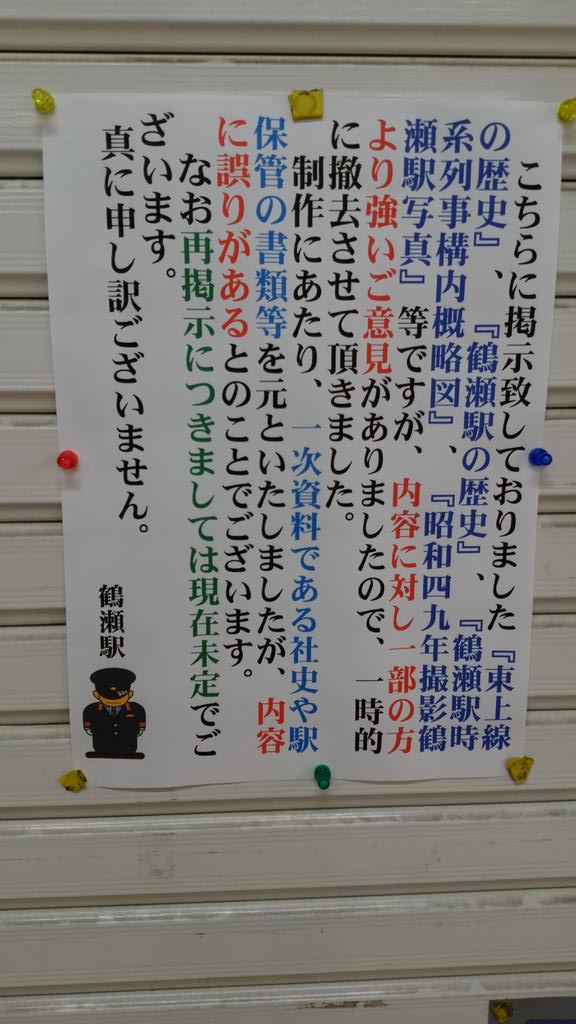 こちらに掲示致しておりました『東上線
の歴史』、『鶴瀬駅の歴史』、『鶴瀬駅時
系列事構内概略図』、『昭和四九年撮影鶴
瀬駅写真』等ですが、内容に対し一部の方
より強いご意見がありましたので、一時的
に撤去させて頂きました。
制作にあたり、一次資料である社史や駅
保管の書類等を元といたしましたが、内容
に誤りがあるとのことでございます。
なお再掲示につきましては現在未定でご
ざいます。
真に申し訳ございません。
鶴瀬駅